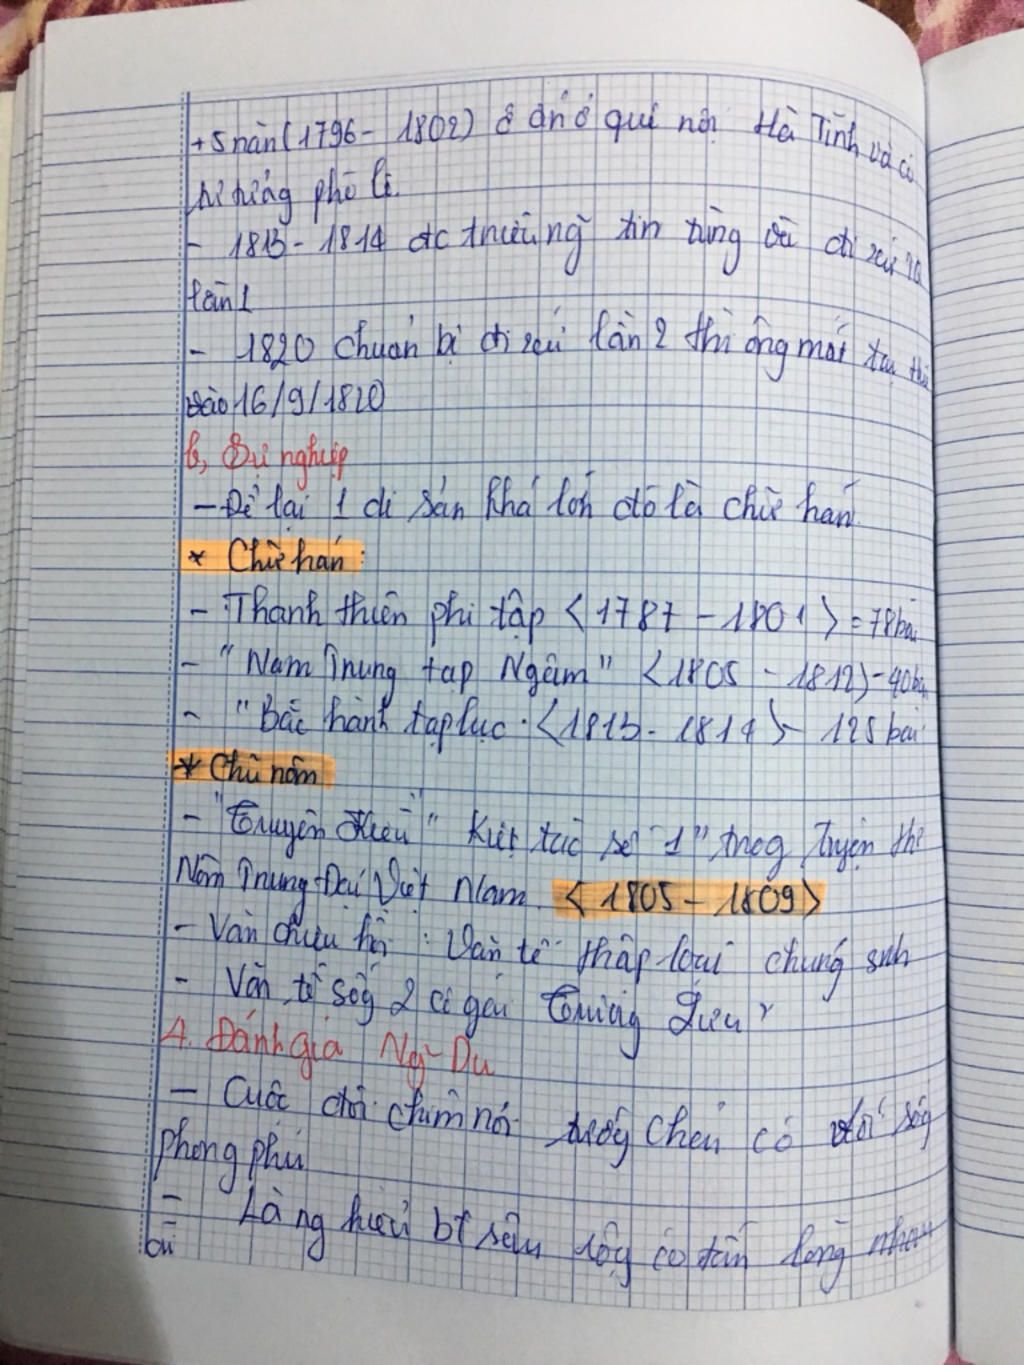 + 5 năm (1796 - 1802) ở ẩn ở quê nội Hà Tĩnh và có
- 1813 - 1814 đc triều ng tin tùng và đi sứ
lần 1
- 1820 chuẩn bị đi sứ lần 2 thì ông mất tại
vào 16/9/1820
b, Sự nghiệp
- Để lại 1 di sản khá lớn đó là chữ hán
* Chữ hán:
- Thanh thiên phi tập <1787 - 1801> = 78 bài
- "Nam Trung tạp Ngâm" <1805 - 1812) - 40 bài
- "Bắc hành tạp lục <1813 - 1814> - 125 bài
* Chữ nôm
- "Truyện Kiều" Kiệt tác số "1" trog truyện thơ
Nôm Trung Đại Việt Nam <1805 - 1809>
- Văn chiêu hồn : Văn tế thập loại chúng snh
- Văn tế sốg 2 cô gái Trường Lưu
4. Đánh giá Ng~ Du
- Cuộc đời chìm nổi có vốn sốg
phong phú
- Là ng hiểu bt sâu rộg có tấm lòng